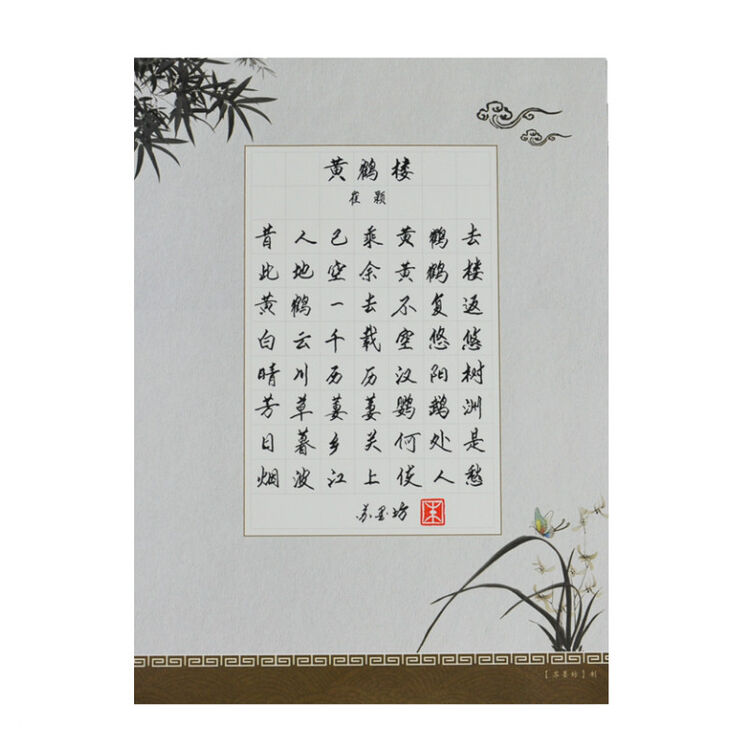 黄鹤楼
崔颢
昔人已乘黄鹤去
此地空余黄鹤楼
黄鹤一去不复返
白云千载空悠悠
晴川历历汉阳树
芳草萋萋鹦鹉洲
日暮乡关何处是
烟波江上使人愁
苏墨坊
【苏墨坊】制